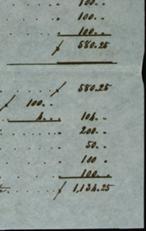 100..
100..
100..
$ 580.25
$ 580.25
$ 100..
4.. 104..
200..
50..
100.
100..
$ 1,134.25